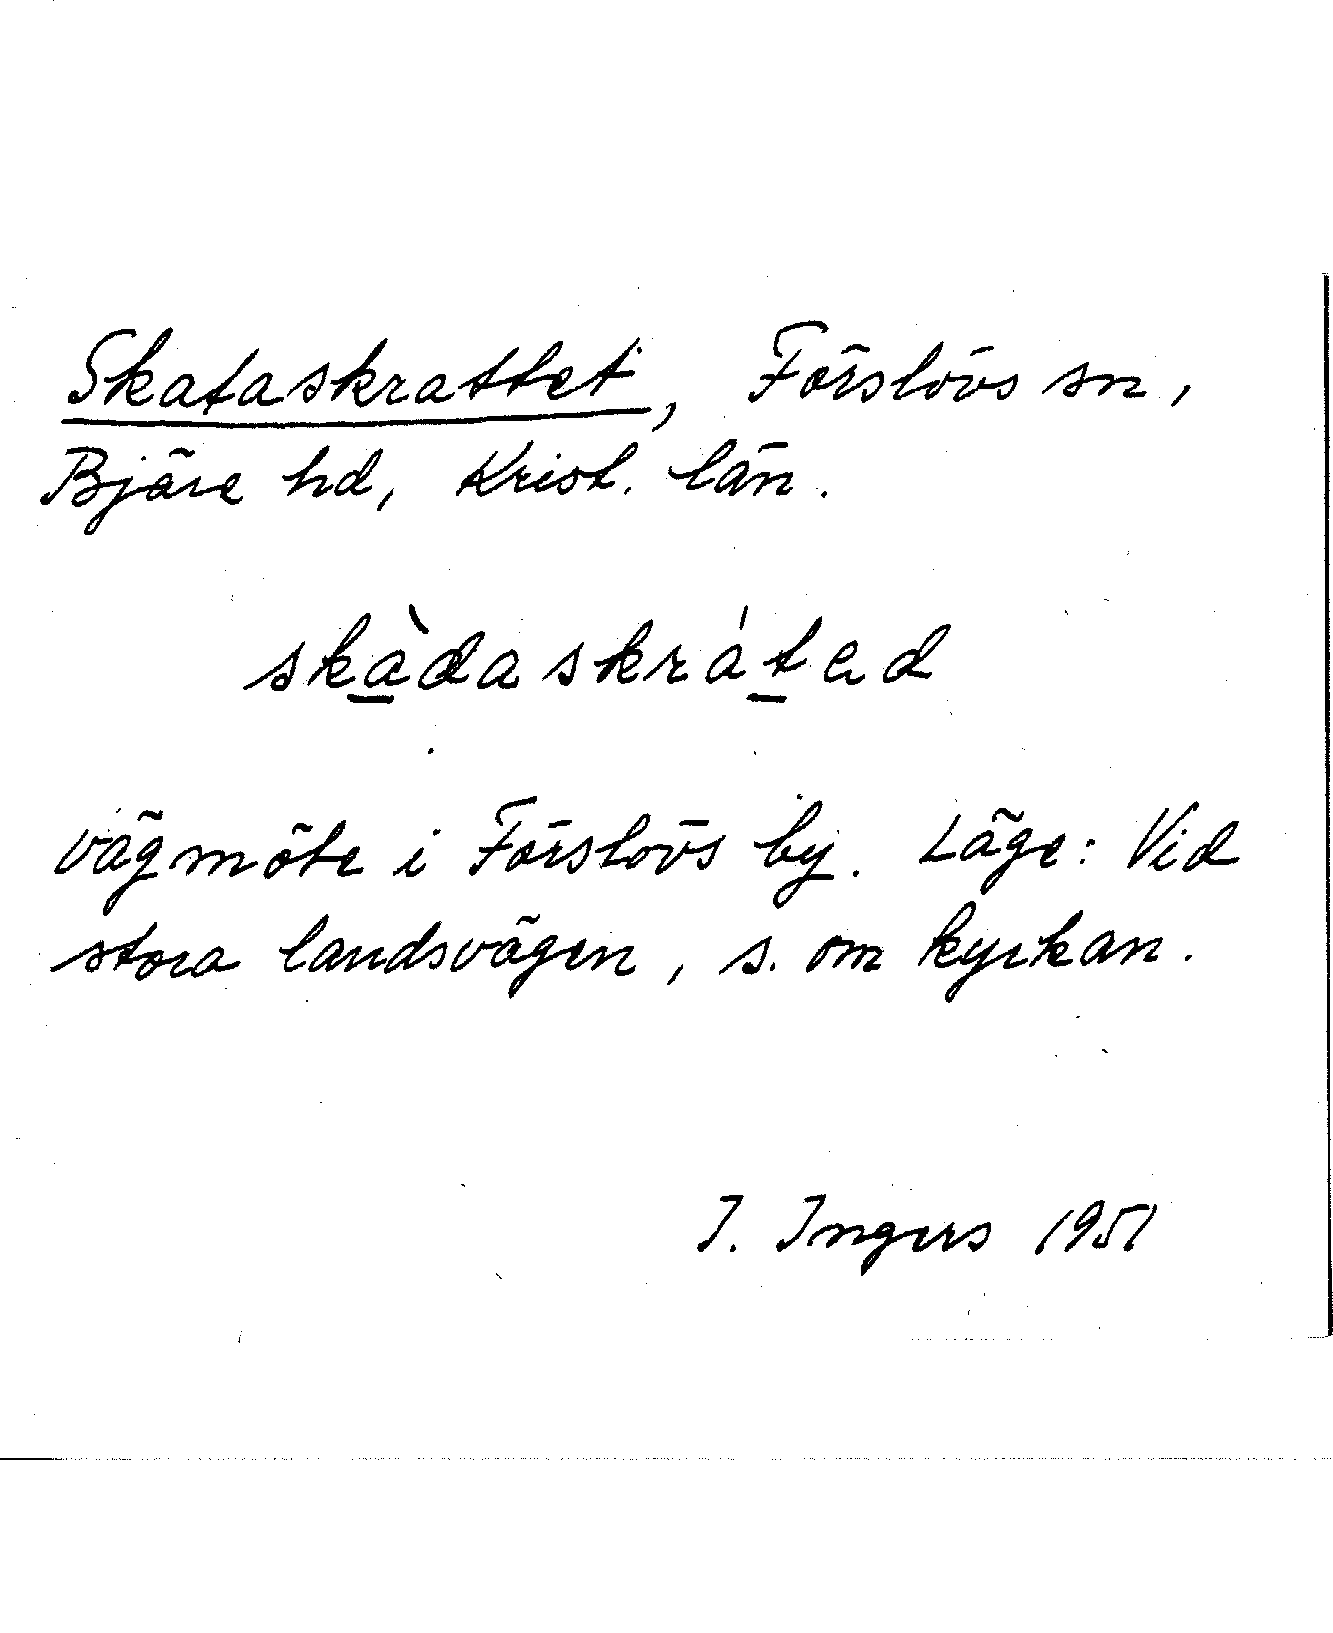 Skataskrattet, Förslövs sn,
Bjäre hd, Krist. län.
skàdaskráted
vägmöte i Förslövs by. Läge: Vid
stora landsvägen, s. om kyrkan.
I. Ingers 1951